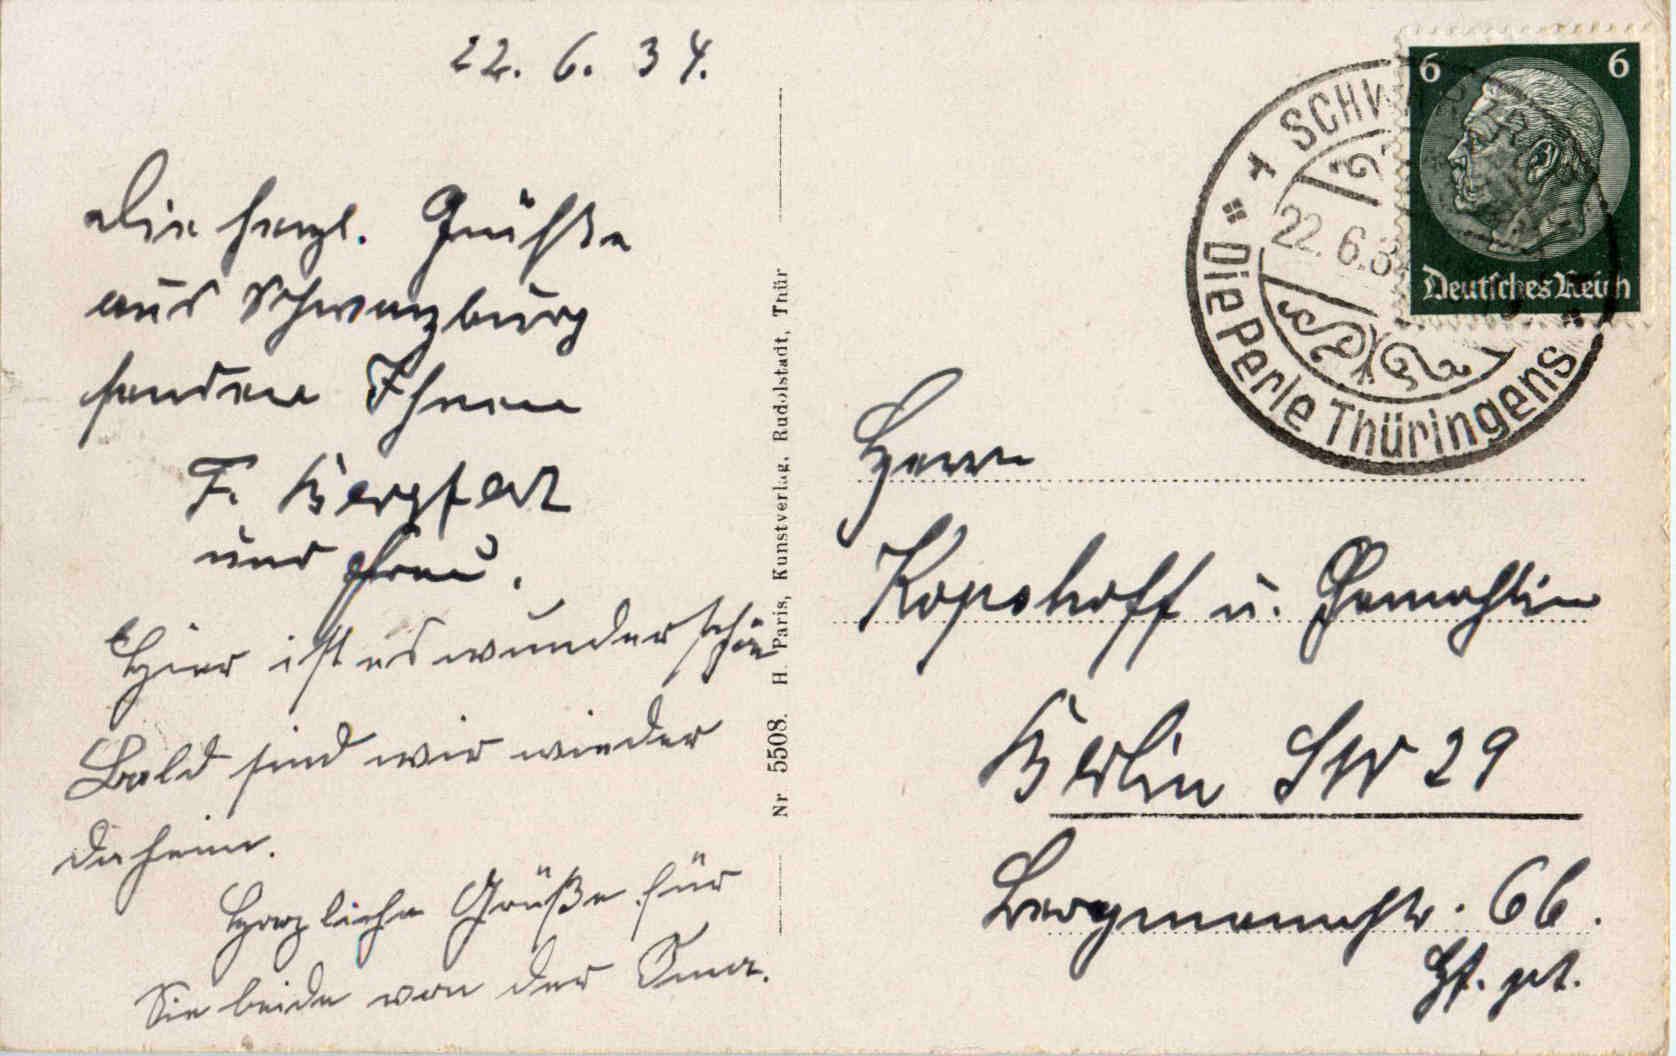 22. 6. 34.
Die herzl. Grüße
aus Schwarzburg
senden Ihnen
F.
und Frau.
Hier ist es wunderschön
Bald sind wir wieder
daheim.
Herzliche Grüße für
Sie beide von der Oma.
Nr 5508. H. Paris, Kunstverlag, Rudolstadt, Thür
6 6
Deutsches Reich
22.6.34
Die Perle Thüringens
Herrn
Kopshoff u. Gemahlin
Berlin SW 29
Bergmannstr. 66.